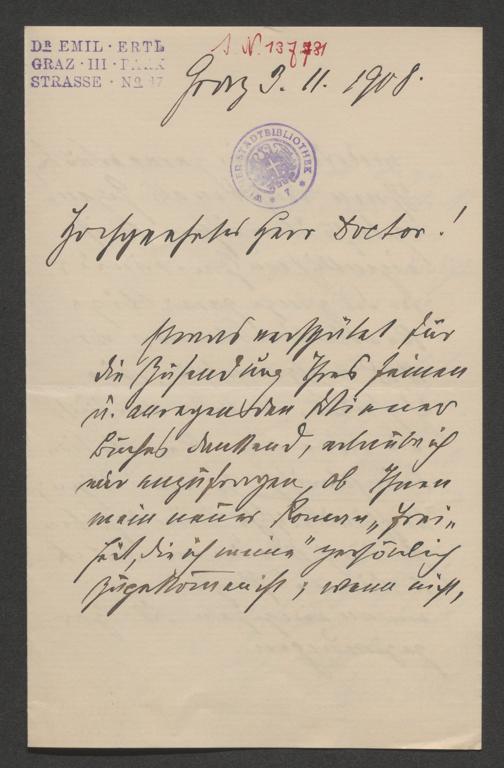 DR EMIL · ERTL
GRAZ · III · PARK
STRASSE · No 47
J. N. 137781
Graz 9. 11. 1908.
WIENER STADTBIBLIOTHEK
Hochgeehrter Herr Doctor!
Etwas verspätet für
die Zusendung Ihres feinen
u. anregenden Wiener
Buches dankend, erlaube ich
mir anzufragen, ob Ihnen
mein neuer Roman „Frei-
heit, die ich meine" persönlich
zugekommen ist; wenn nicht,